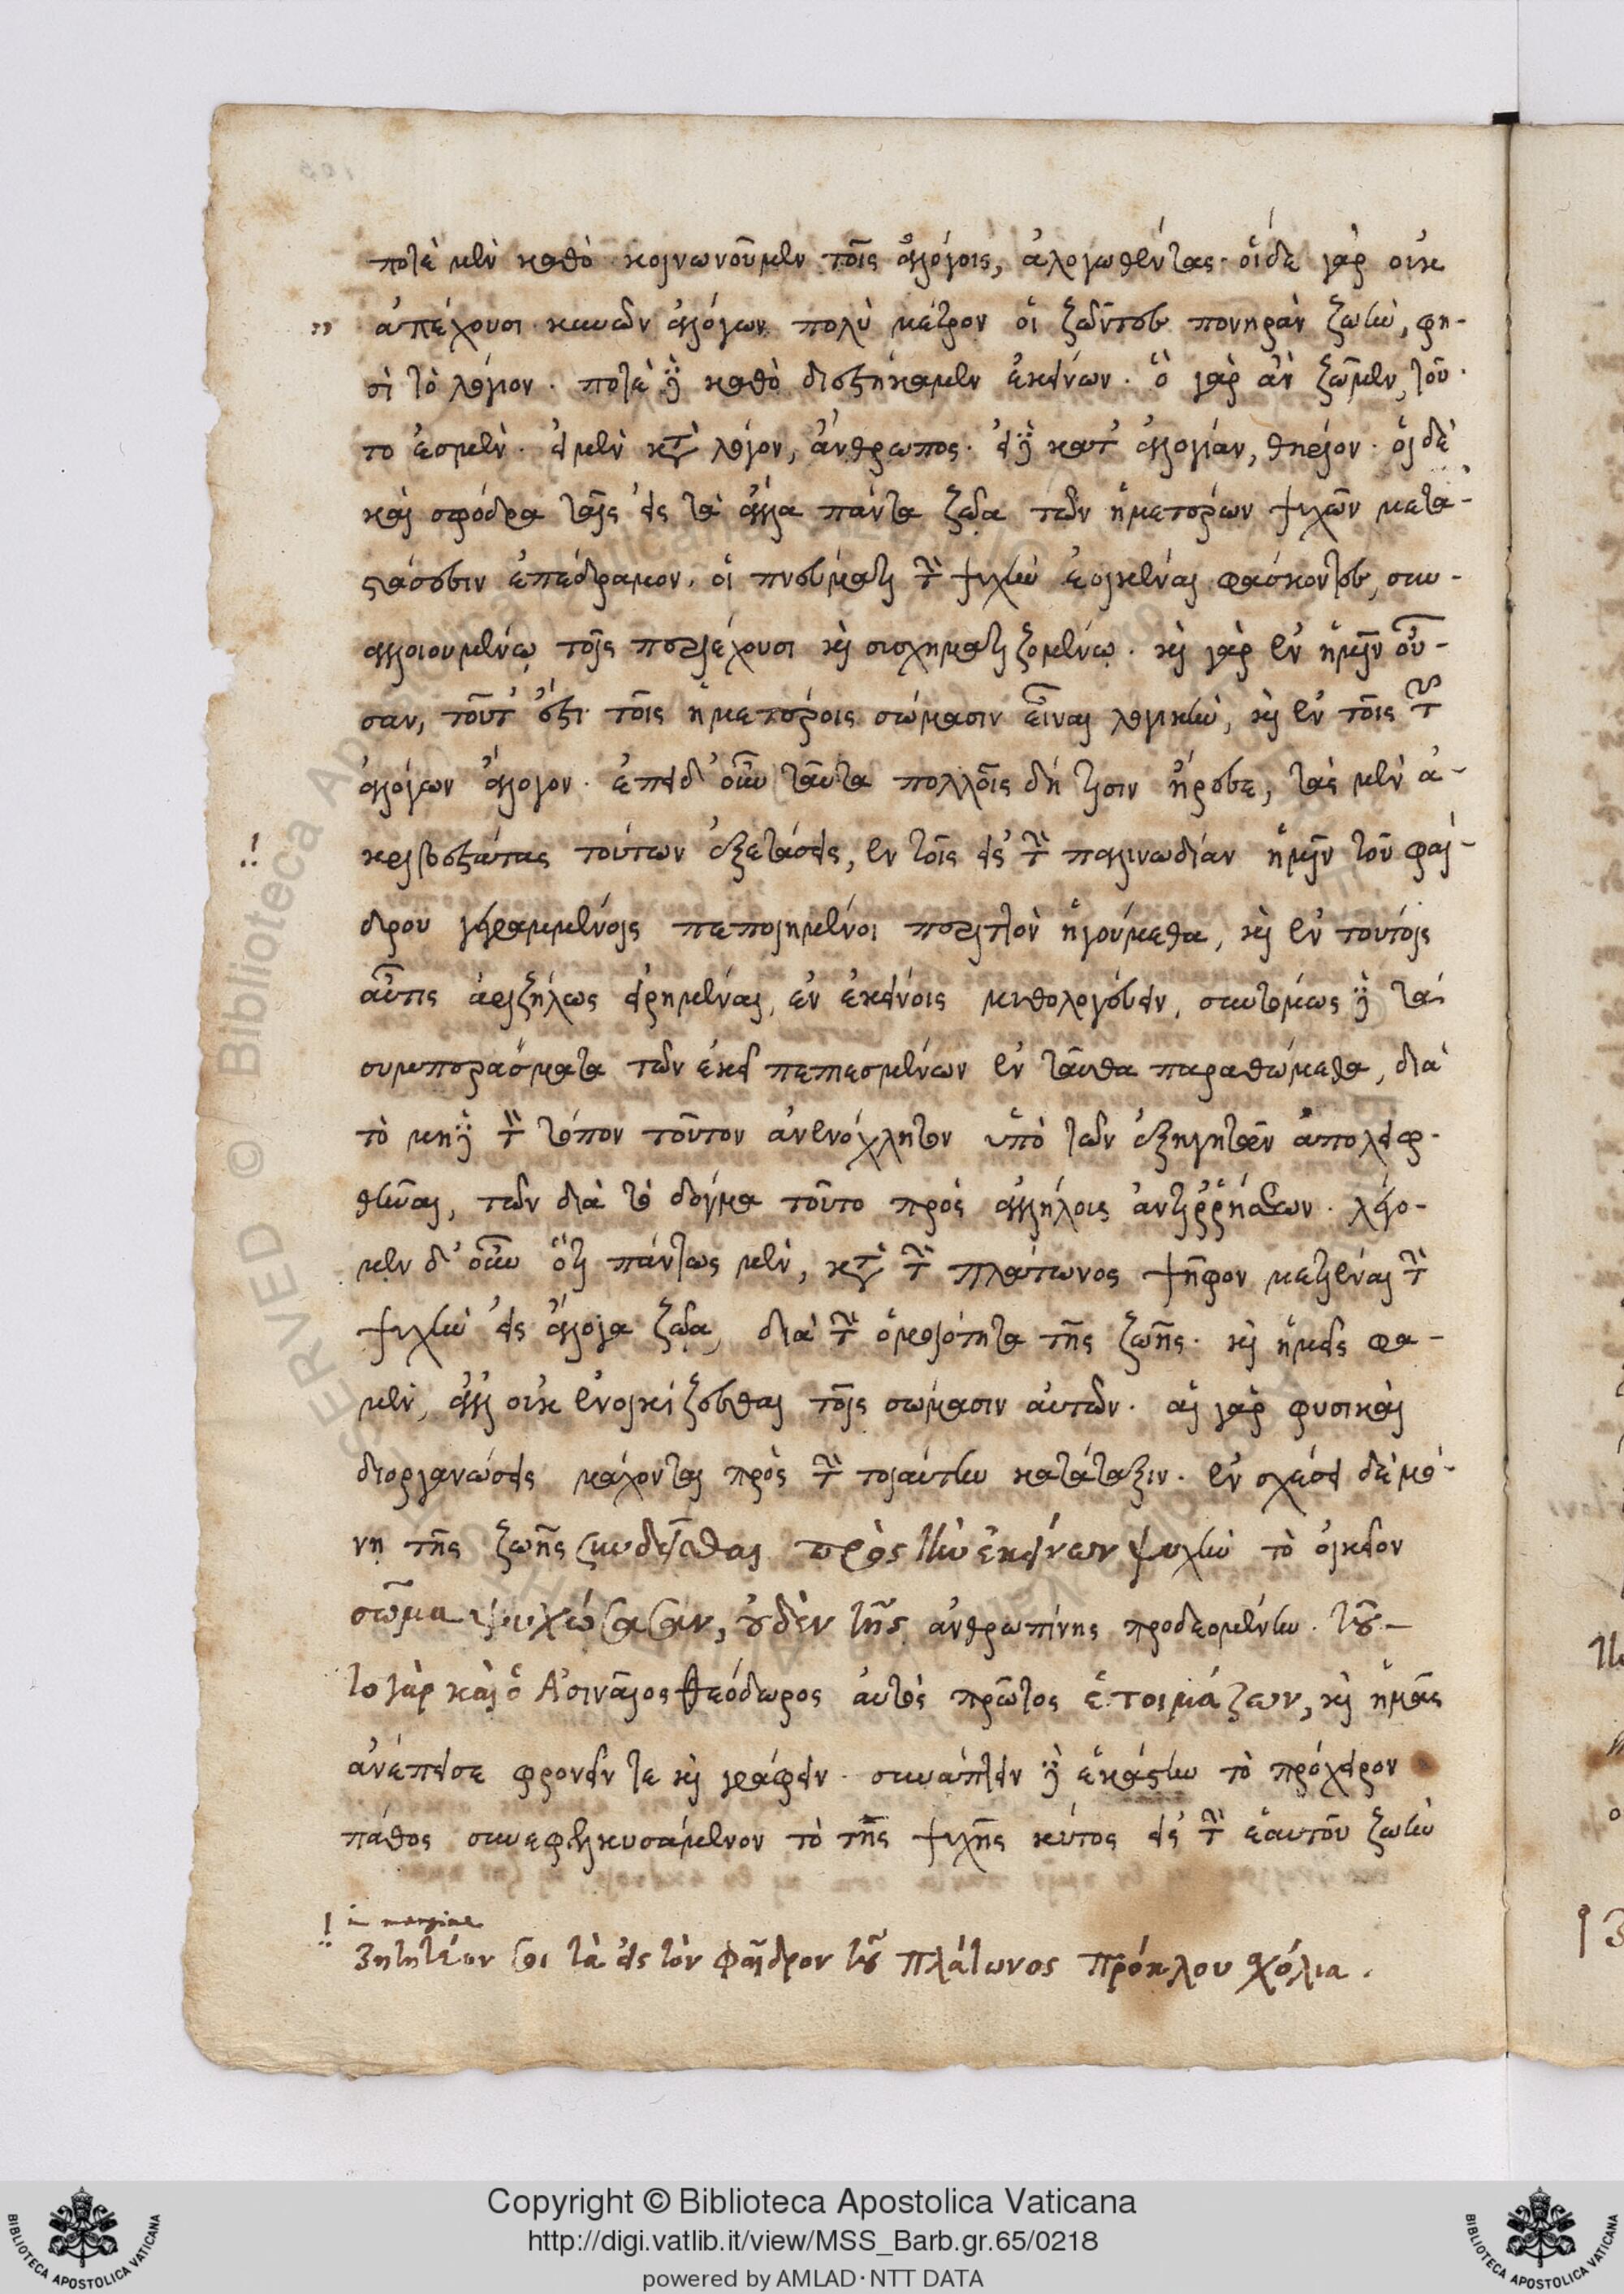 ποτὲ μὲν καθὸ κοινωνοῦμεν τοῖς ἀλόγοις, ἀλογωθέντας. οἵδε γὰρ οὐκ
ἀπέχουσι κυνῶν ἀλόγων πολὺ μέτρον οἱ ζῶντες πονηρὰν ζωὴν, φη-
σὶ τὸ λόγιον. ποτὲ δὲ καθὸ διεστήκαμεν ἐκείνων. ὃ γὰρ ἂν ζῶμεν, τοῦ-
το ἐσμὲν. εἰ μὲν κατὰ λόγον, ἄνθρωπος. εἰ δὲ κατ' ἀλογίαν, θηρίον. οἱ δὲ
καὶ σφόδρα ταῖς εἰς τὰ ἄλλα πάντα ζῶα τῶν ἡμετέρων ψυχῶν μετα-
στάσεσιν ἐπέδραμον. οἱ πνεύματι τὴν ψυχὴν ἐοικέναι φάσκοντες, συν-
αλλοιουμένῳ τοῖς περιέχουσι καὶ συσχηματιζομένῳ. καὶ γὰρ ἐν ἡμῖν οὖ-
σαν, τοῦτ' ἔστι τοῖς ἡμετέροις σώμασιν εἶναι λογικὴν, καὶ ἐν τοῖς τῶν
ἀλόγων ἄλογον. ἐπεὶ δ' οὖν ταῦτα πολλοῖς δή τισιν ἤρεσε, τὰς μὲν ἀ-
κριβεστάτας τούτων ἐξετάσεις, ἐν τοῖς εἰς τὴν παλινωδίαν ἡμῖν τοῦ φαί-
δρου γεγραμμένοις πεποιημένοι περιττὸν ἡγούμεθα, καὶ ἐν τούτοις
αὖτις ἀριζήλως εἰρημένα, ἐν ἐκείνοις μυθολογεύειν, συντόμως δὲ τὰ
συμπεράσματα τῶν ἐκεῖ πεπιεσμένων ἐνταῦθα παραθώμεθα, διὰ
τὸ μηδὲ τὸν τόπον τοῦτον ἀνενόχλητον ὑπὸ τῶν ἐξηγητῶν ἀπολειφ-
θῆναι, τῶν διὰ τὸ δόγμα τοῦτο πρὸς ἀλλήλοις ἀντιρρήσεων. λέγο-
μεν δ' οὖν ὅτι πάντως μὲν, κατὰ τὴν πλάτωνος ψῆφον μετιέναι τὴν
ψυχὴν εἰς ἄλογα ζῶα, διὰ τὴν ὁμοιότητα τῆς ζωῆς. καὶ ἡμεῖς φα-
μὲν, ἀλλ' οὐκ ἐνοικίζεσθαι τοῖς σώμασιν αὐτῶν. αἱ γὰρ φυσικαὶ
διοργανώσεις μάχονται πρὸς τὴν τοιαύτην κατάταξιν. ἐν σχέσει δὲ μό-
νῃ τῆς ζωῆς συνδεῖσθαι πρὸς τὴν ἐκείνων ψυχὴν τὸ οἰκεῖον
σῶμα ψυχώσασαν, οὐδὲν τῆς ἀνθρωπίνης προσδεομένην. τοῦ-
το γὰρ καὶ ὁ Ἀσιναῖος θεόδωρος αὐτὸς πρῶτος ἑτοιμάζων, καὶ ἡμᾶς
ἀνέπεισε φρονεῖν τε καὶ γράφειν. συνάπτειν δὲ ἑκάστην τὸ πρόχειρον
πάθος συνεφελκυσάμενον τὸ τῆς ψυχῆς κύτος εἰς τὴν ἑαυτοῦ ζωὴν
in margine
Ζητητέον σοι τὰ εἰς τὸν Φαῖδρον τοῦ Πλάτωνος Πρόκλου σχόλια.
Copyright © Biblioteca Apostolica Vaticana
http://digi.vatlib.it/view/MSS_Barb.gr.65/0218
powered by AMLAD · NTT DATA